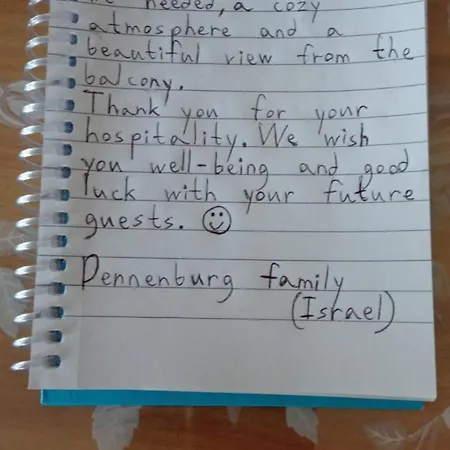 needed, a cozy
atmosphere and a
beautiful view from the
balcony.
Thank you for your
hospitality. We wish
you well-being and good
luck with your future
guests. ☺
Dennenburg family
(Israel)